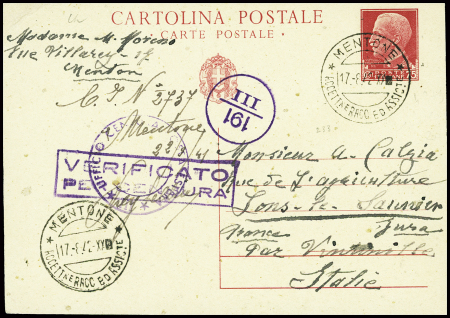 CARTOLINA POSTALE
CARTE POSTALE
Madame M. Moreno
Rue Villarey 17
Menton
C.I. N° 2737
Mentone
III
191
VERIFICATO
PER CENSURA
UFFICIO
MENTONE
17·6·42·XX
ACCETT.NE RACC. ED ASSIC.TE
MENTONE
17·6·42·XX
ACCETT.NE RACC. ED ASSIC.TE
Monsieur A. Calzia
Rue de l'agriculture
Lons-le-Saunier
Jura
France
Par Vintimille
Italie